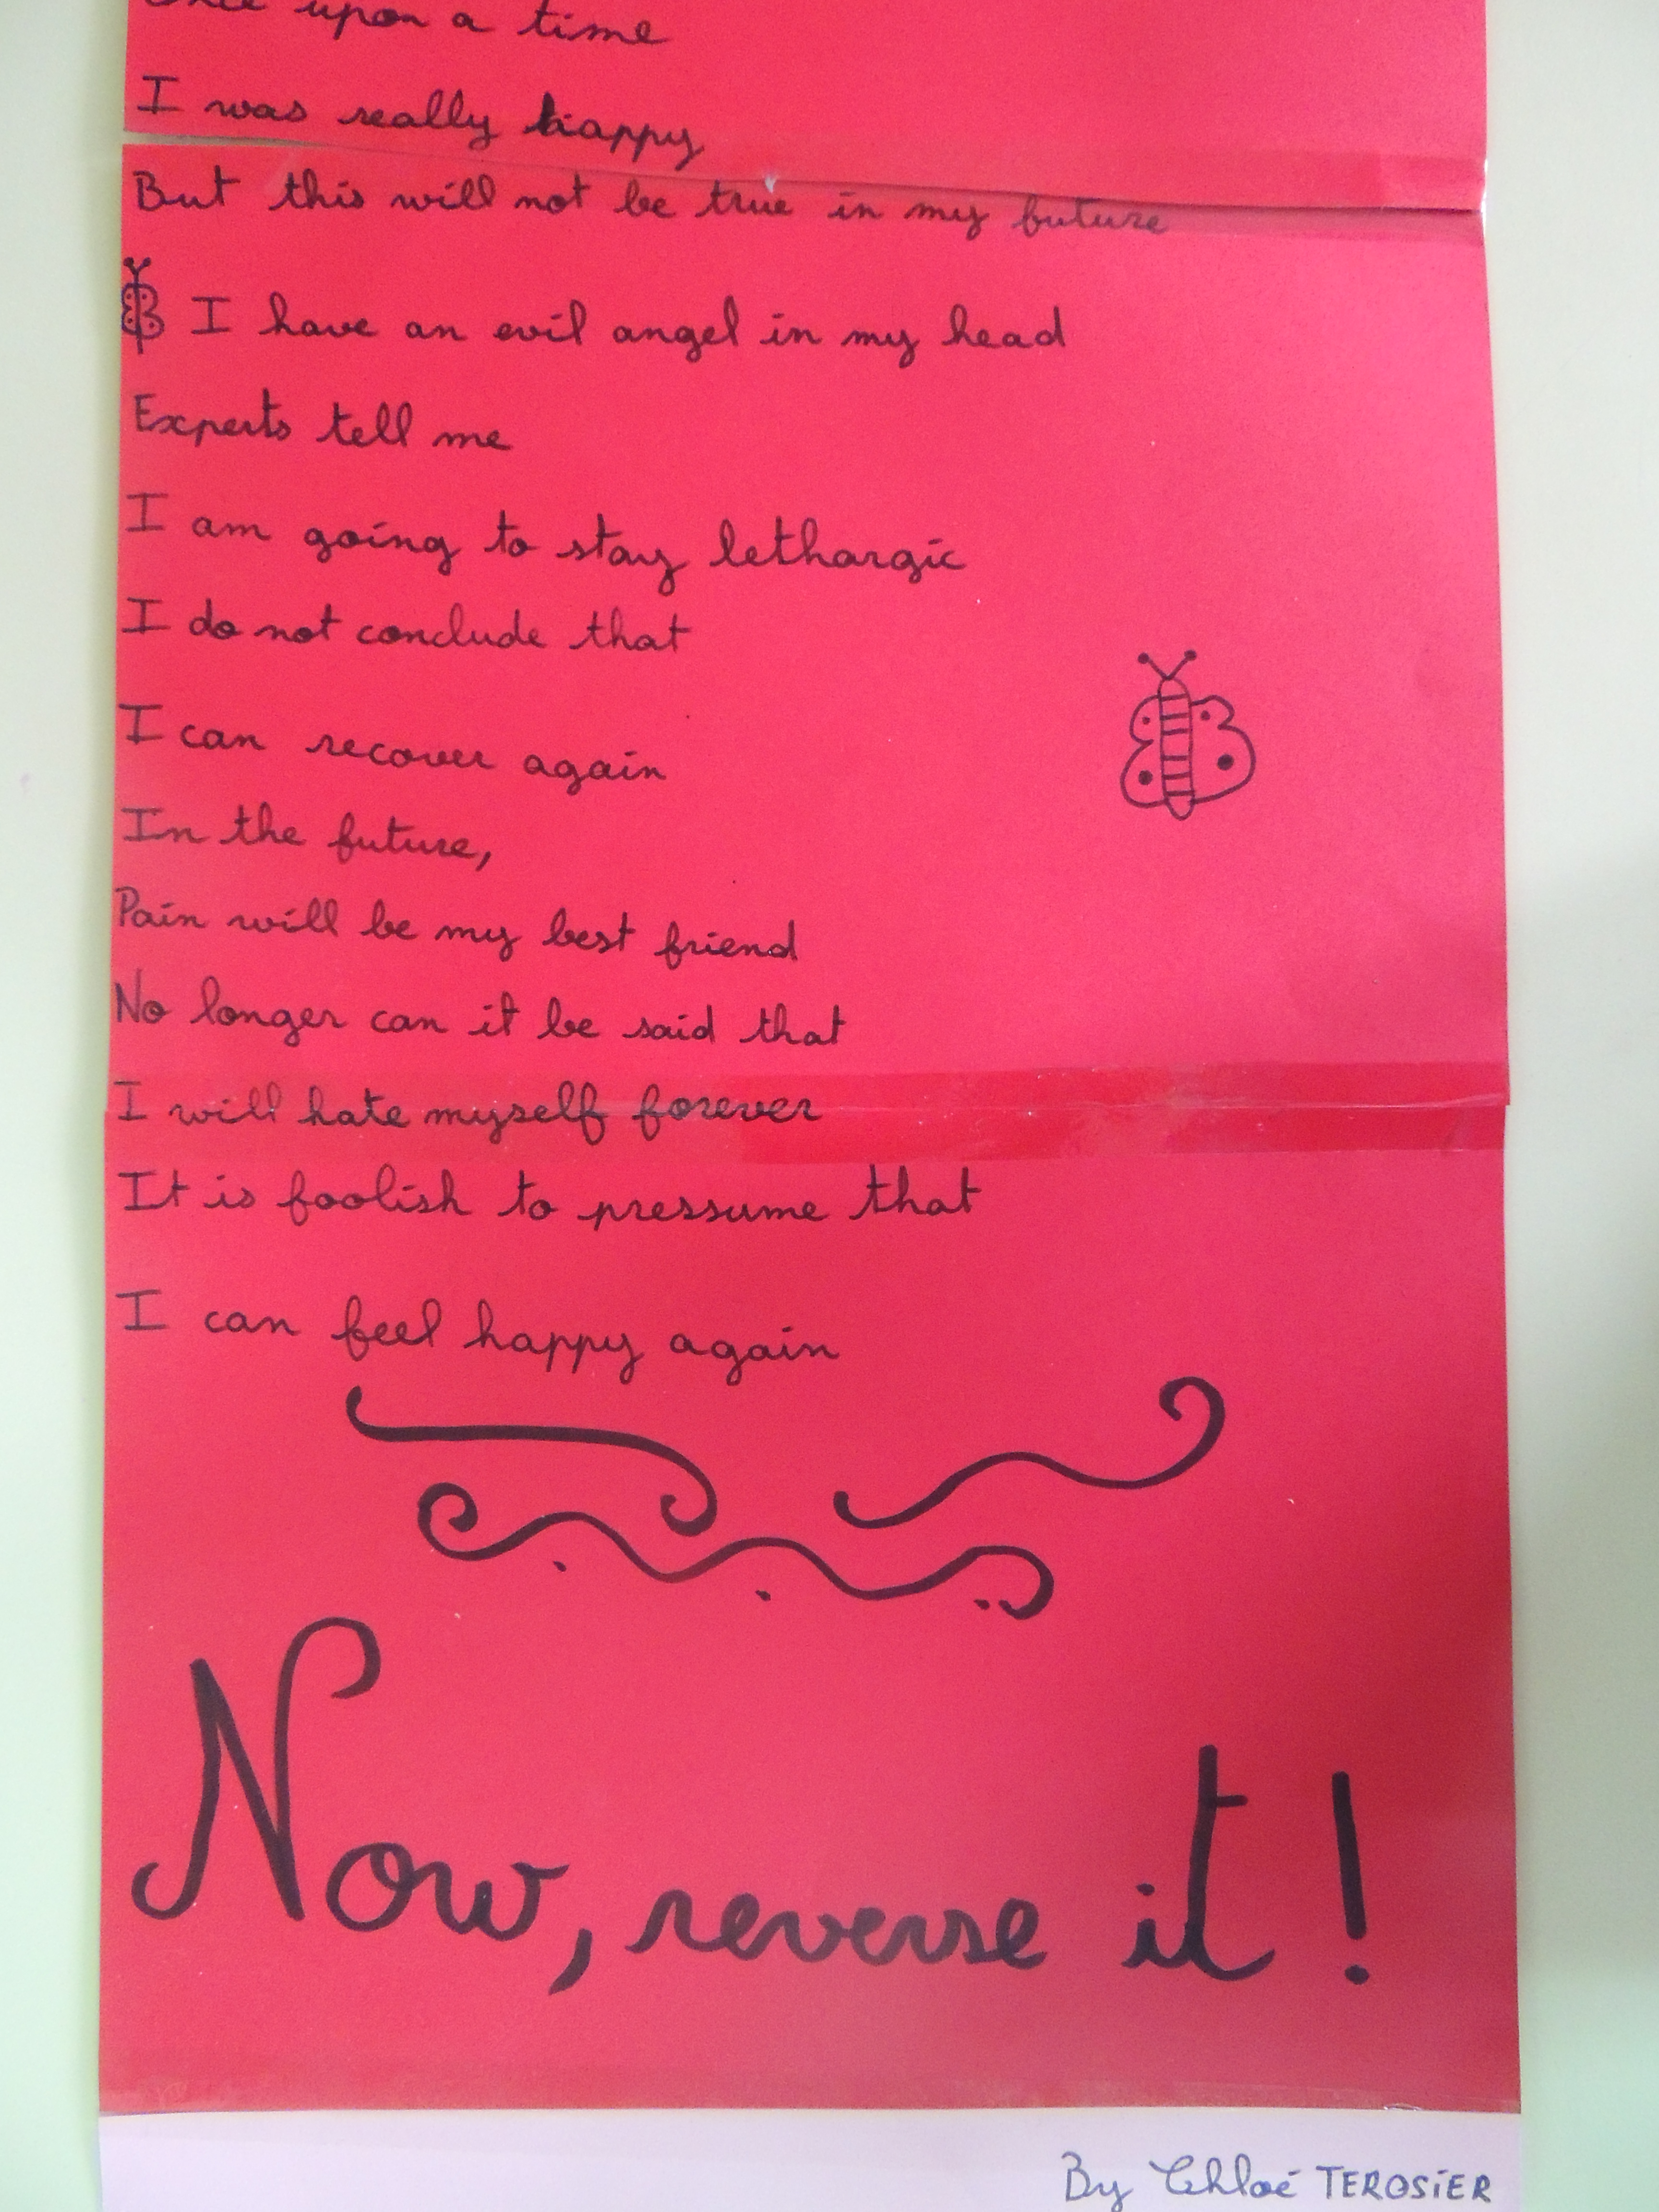 Once upon a time
I was really happy
But this will not be true in my future
I have an evil angel in my head
Experts tell me
I am going to stay lethargic
I do not conclude that
I can recover again
In the future,
Pain will be my best friend
No longer can it be said that
I will hate myself forever
It is foolish to pressume that
I can feel happy again
Now, reverse it!
By Chloé TEROSiER